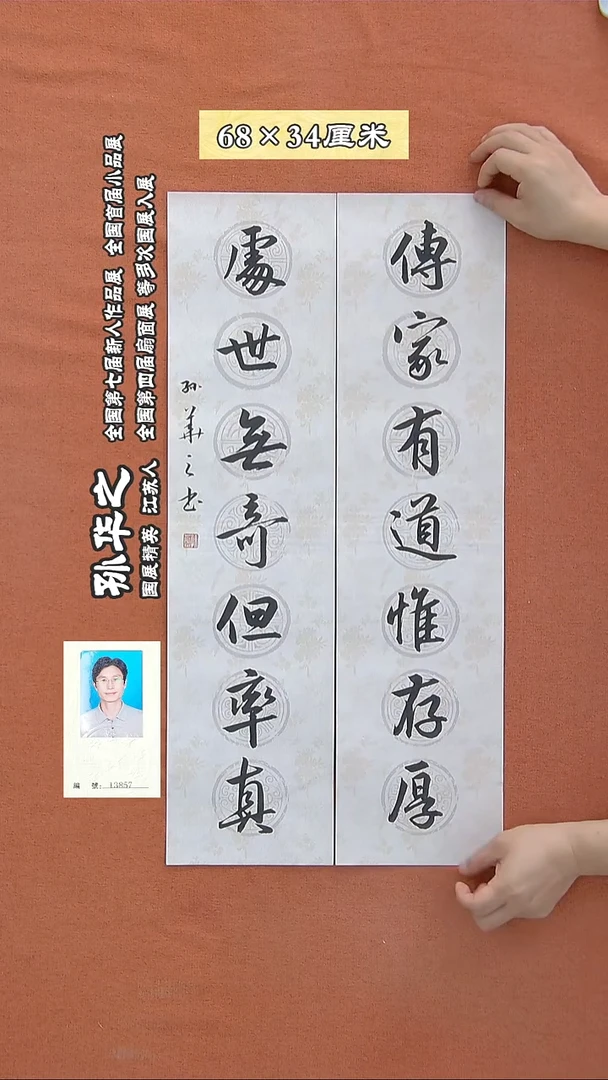 68×34厘米
傳家有道惟存厚
處世無奇但率真
孙華之书
全国第七届新人作品展 全国首届小品展
全国第四届扇面展 等多次国展入展
孙华之
国展精英 江苏人
編 號：13857